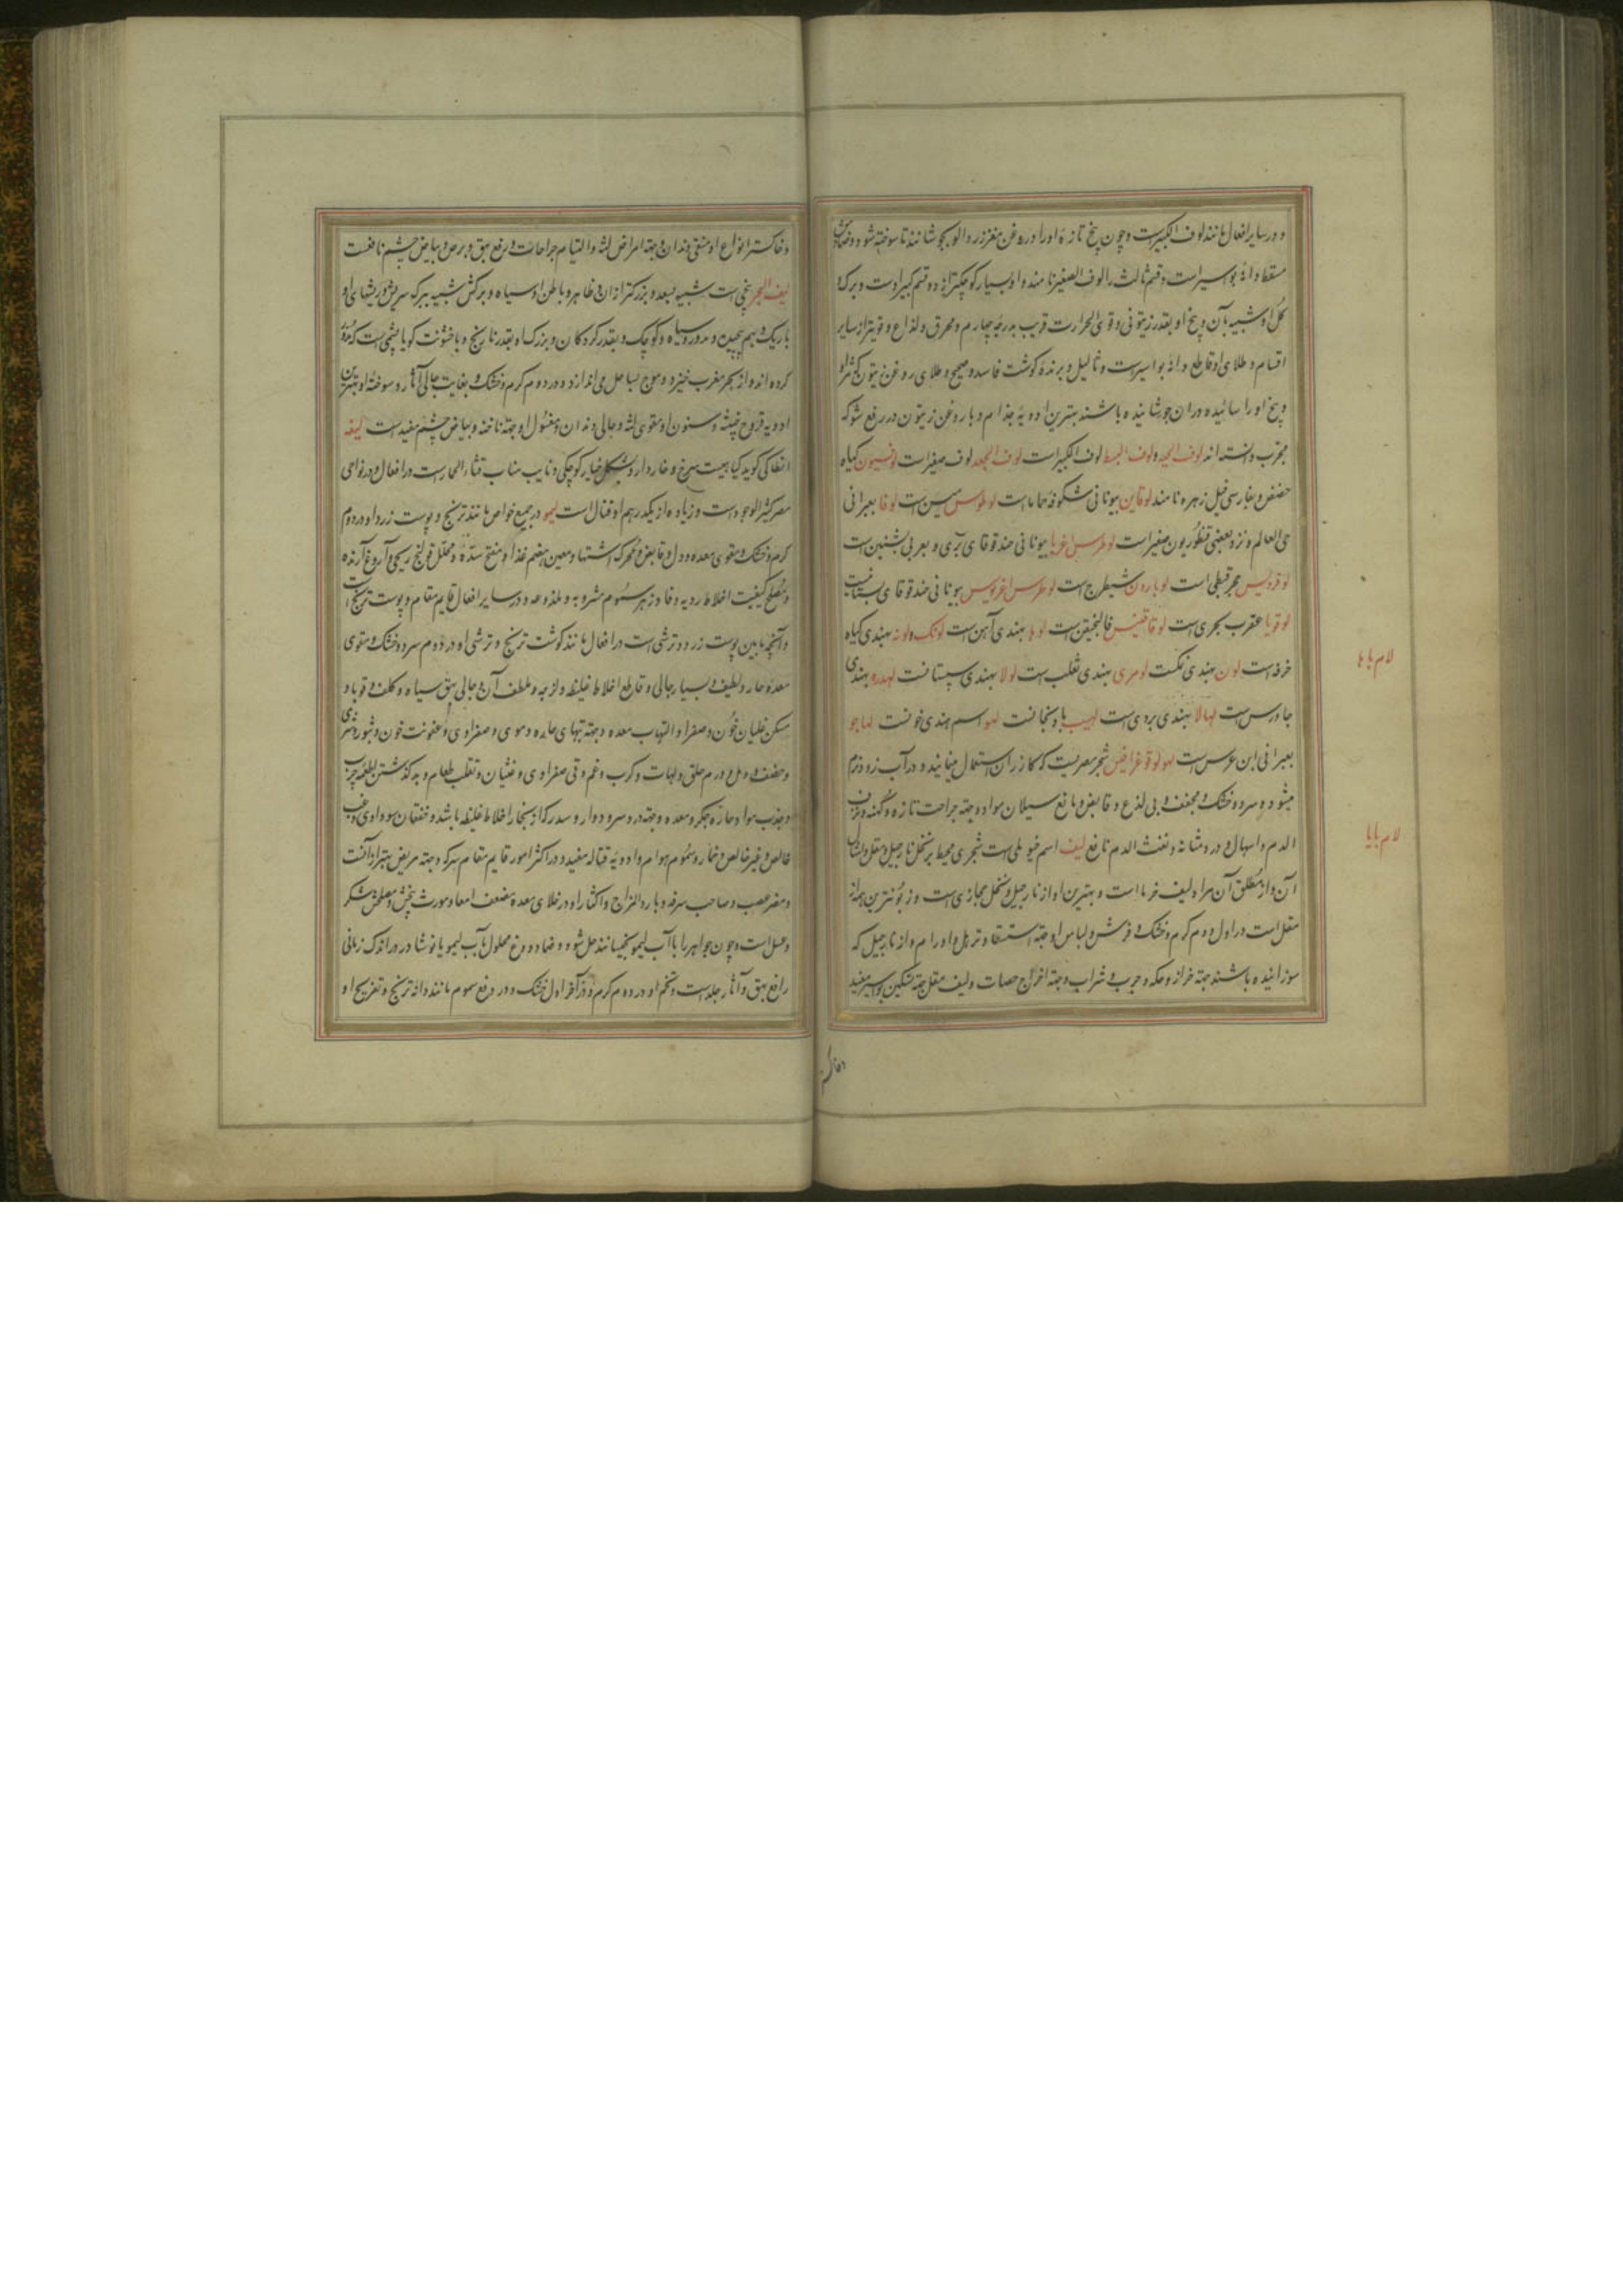 و در سایر افعال مانند لوف الکبیرست و چون بیخ تازه او را در روغن مغز زردالو بجوشانند تا سوخته شود و ضمادش
مسقط دانهٔ بواسیر است و قسم ثالث را لوف الصغیر نامند و او بسیار کوچکتر از دو قسم کبیر اوست و برک و
کل او شبیه بآن و بیخ او بقدر زیتونی و قوی الحرارت قریب بدرجهٔ چهارم و محرق و لذاع و قویتر از سایر
اقسام و طلای او قاطع دانهٔ بواسیرست و ثالیل و برندهٔ کوشت فاسد و صحیح و طلای روغن زیتون که ثمر او
و بیخ او را سائیده در ان جوشانیده باشند بهترین ادویهٔ جذام و با روغن زیتون در رفع شوکه
مجرب دانسته اند لوف الحیه و لوف البسط لوف الکبیراست لوف الجعد لوف صغیراست لوفسیون کیاه
حضض و بفارسی فیل زهره نامند لوقاین بیونانی شکوفهٔ حماماست لوطوس است لوفا بعبرانی
حی العالم و نزد بعضی قنطوریون صغیر است لوطوس اغریا بیونانی حندقوقای بری و بعربی بشنین است
لوقردیس حجر قبطی است لوبارون شیطرج است لوطوس اغریوس بیونانی حندقوقای بستانیست
لوقویا عقرب بحری است لوقاقینس فالنجیقن است لوها بهندی آهن است لونک و لونه بهندی کیاه
خرفه است لون بهندی نمکست لومری بهندی ثعلب است لولا بهندی سپستانست لهدره بهندی
جاورس است لهالا بهندی بردی است لهیب بادنجانست لهو اسم هندی خونست لهاجو
بعبرانی ابن عرس است لهولوقوغرافیس حجر مصریست که کازران استعمال مینمایند و در آب زود نرم
میشود و سرد و خشک و مجفف و بی لذع و قابض و مانع سیلان مواد و جهة جراحت تازه و کهنه و نزف
الدم و اسهال و درد مثانه و نفث الدم نافع لیف اسم خیوطی است شجری محیط بر نخل نارجیل و مقل و امثال
آن و از مطلق آن مراد لیف خرماست و بهترین او از نارجیل و نخل حجازی است و زبونترین همه از
مقل است در اول دوم کرم و خشک و فرش و لباس او جهة استسقا و ترهل و اورام و از نارجیل که
سوزانیده باشند جهة حزاز و حکه و جرب و شراب و جهة اخراج حصات و لیف مقل جهة تسکین بواسیر مفید
لام با ها
لام با یا
و خاکستر
و خاکستر انواع او منقی دندان و جهة امراض لثه و التیام جراحات و رفع بهق و برص و بیاض چشم نافعست
لیف البحر بیخی است شبیه بسعد و بزرکتر از ان و ظاهر و باطن او سیاه و برکش شبیه ببرک سریش و ریشهای او
باریک و بهم پیچیده و مدور و سیاه و کوچک و بقدر کردکان و بزرک او بقدر نارنج و باخشونت کویا پشمی است که مدور
کرده اند و از بحر مغرب خیزد و موج بساحل می اندازد و در دوم کرم و خشک و بغایت جالی آثار و سوختهٔ او بهترین
ادویه قروح خبیثه و سنون او مقوی لثه و جالی دندان و مغسول او جهة ناخنه و بیاض چشم مفید است لیفه
انطاکی کوید کیاهیست سرخ و خاردار و بشکل خیار کوچکی و نایب مناب قثاء الحمارست در افعال و در نواحی
مصر کثیر الوجود است و زیاده از یکدرهم او قتال است لیمو در جمیع خواص مانند ترنج و پوست زرد او در دوم
کرم و خشک و مقوی معده و دل و قابض و محرک اشتها و معین هضم غذا و مفتح سده و محلل قولنج ریحی و آروغ آرنده
و مصلح کیفیت اخلاط ردیه و فادزهر سموم مشروبه و ملذوعه و در سایر افعال قایم مقام پوست ترنج است
و آنچه مابین پوست زرد و ترشی است در افعال مانند کوشت ترنج و ترشی او در دوم سرد و خشک و مقوی
معدهٔ حار و لطیف و بسیار جالی و قاطع اخلاط غلیظه و لزجه و ملطف آن و جالی بهق سیاه و کلف و قوباء و
مسکن غلیان خون و صفرا و التهاب معده و جهة تبهای حاده دموی و صفراوی و عفونت خون و بثور و شری
و حصف و دمل و ورم حلق و لهات و کرب و غم و قی صفراوی و غثیان و تقلب طعام و به کذشتن لقمه چرب
و جذب مواد حاره بجکر و معده و جهة درد سر و دوار و سدر که از بخار اخلاط غلیظه باشد و خفقان سوداوی و غب
خالص و غیر خالص و خمار و سموم هوام و ادویهٔ قتاله مفید و در اکثر امور قایم مقام سرکه و جهة مریض بهتر از آنست
و مضر عصب و صاحب سرفه و بارد المزاج و اکثار او در خلای معده مضعف امعا و مورث پیچش و مصلحش شکر
و عسل است و چون جواهر را با آب لیمو بخیسانند حل شود و ضماد ودع محلول بآب لیمو با نوشادر در اندک زمانی
رافع بهق و آثار جلد است و تخم او در دوم کرم و در آخر اول خشک و در دفع سموم مانند دانه ترنج و تفریح او